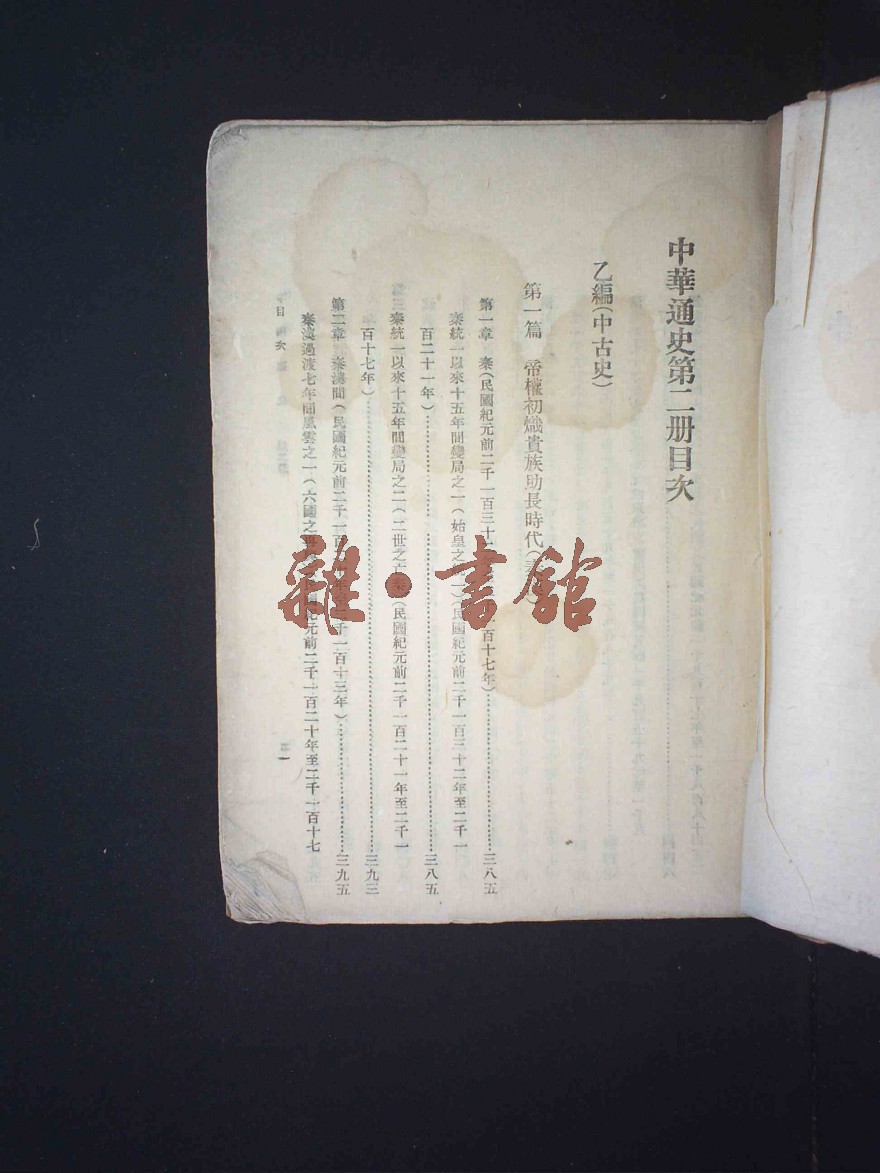 中華通史第二册目次
乙編(中古史)
第一篇 帝權初熾貴族助長時代(秦
第一章 秦(民國紀元前二千一百三十 百十七年)……三八五
秦統一以來十五年間變局之一(始皇之 一)(民國紀元前二千一百三十二年至二千一
百二十一年)……三八五
秦統一以來十五年間變局之二(二世之亡秦)(民國紀元前二千一百二十一年至二千一
百十七年)……三九三
第二章 秦漢間(民國紀元前二千一百 年至二千一百十三年)……三九五
秦漢過渡七年間風雲之一(六國之 紀元前二千一百二十年至二千一百十七
目次
一
雜·書館